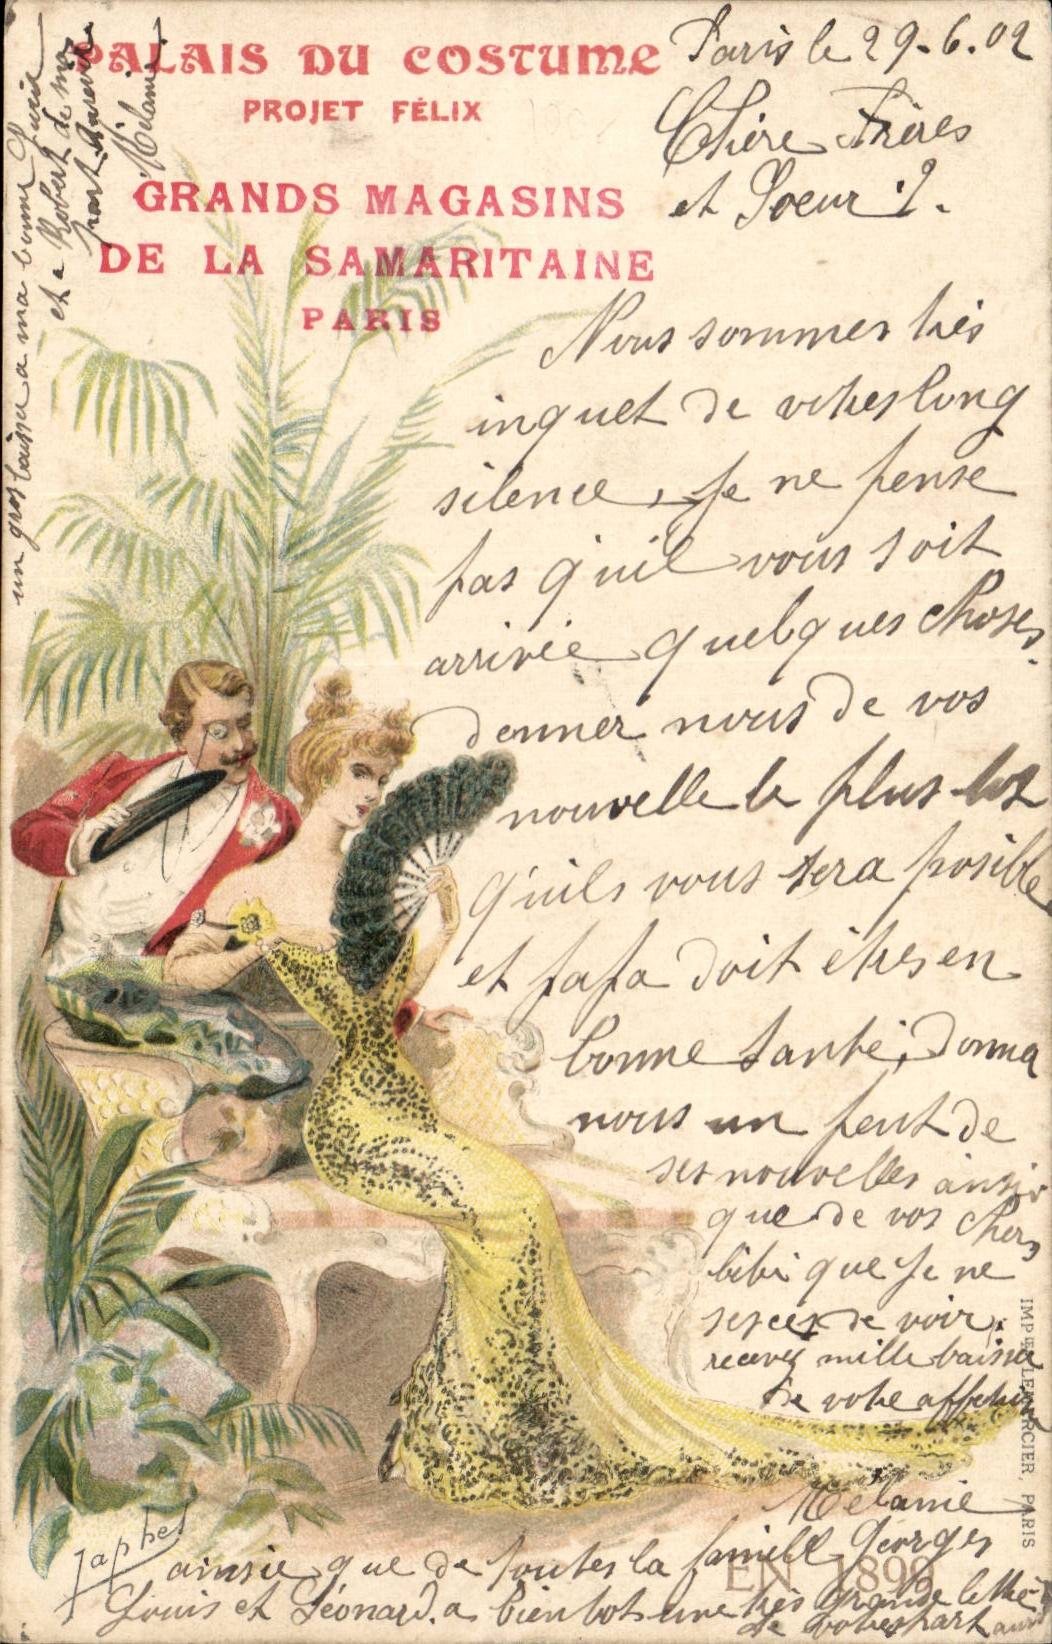 PALAIS DU COSTUME
PROJET FÉLIX
GRANDS MAGASINS
DE LA SAMARITAINE
PARIS
Paris le 29.6.02
Chère Frères
et Soeur !.
Nous sommes très
inquet de votres long
silence, Je ne pense
pas qu'uil vous soit
arrivée quelques choses,
denner nous de vos
nouvelle le plus tot
qu'uils vous sera posible
et papa doit êtres en
bonne santé, donna
nous un peut de
ses nouvelles ainsie
que de vos chers
bibi que Je ne
de voir,
recevez mille baisse
de votre
Mélanie
ainsie que de toutes la famille Georges
Louis et Léonard. a bientot une très grande lettre
de votres part
un gros baisse a ma bonne
et a Robert de ma
part
Mélanie
Japhet
EN 1899
IMP. LEMERCIER, PARIS